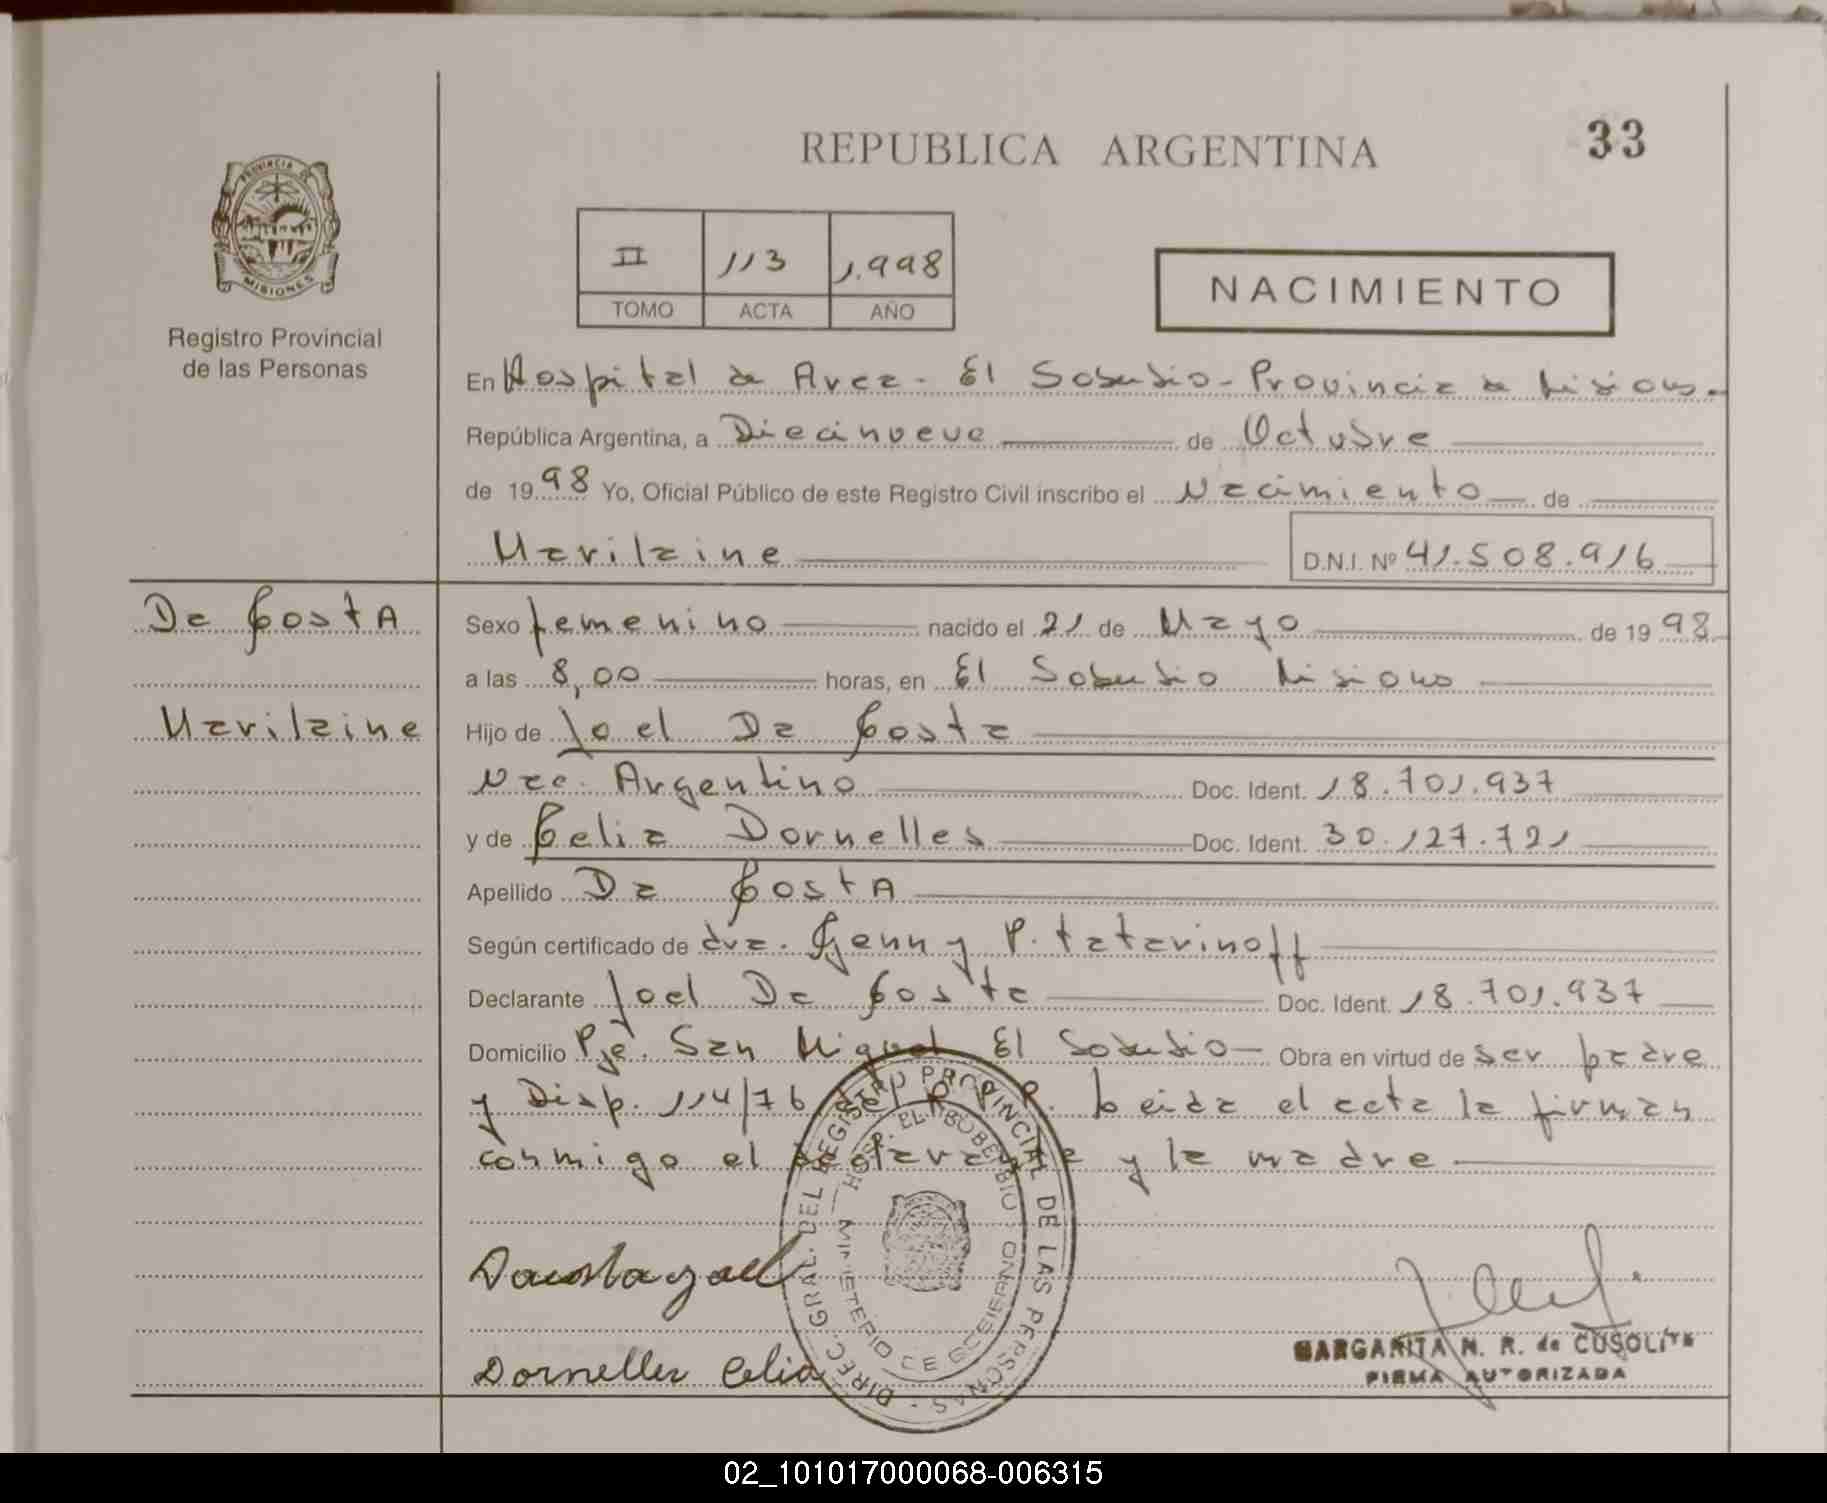 REPUBLICA ARGENTINA
33
PROVINCIA DE
MISIONES
Registro Provincial
de las Personas
II 113 1.998
TOMO ACTA AÑO
NACIMIENTO
En Hospital de Area - El Soberbio - Provincia de Misiones -
República Argentina, a Diecinueve de Octubre
de 1998 Yo, Oficial Público de este Registro Civil inscribo el Nacimiento de
Marilaine D.N.I. Nº 41.508.916
Da Costa
Marilaine
Sexo femenino nacido el 21 de Mayo de 1998
a las 8,00 horas, en El Soberbio Misiones
Hijo de Joel Da Costa
Nac. Argentino Doc. Ident. 18.701.937
y de Celia Dornelles Doc. Ident. 30.127.721
Apellido Da Costa
Según certificado de dra. Genny P. Tatarinoff
Declarante Joel Da Costa Doc. Ident. 18.701.937
Domicilio Pje. San Miguel El Soberbio - Obra en virtud de ser padre
y Disp. 114/76 del R.P.P. Leida el acta la firman
conmigo el declarante y la madre
Dacosta Joel
Dornelles Celia
DIREC. GRAL. DEL REGISTRO PROVINCIAL DE LAS PERSONAS
HOSP. EL SOBERBIO
MINISTERIO DE GOBIERNO
MARGARITA N. R. de CUSOLITO
FIRMA AUTORIZADA
02_101017000068-006315